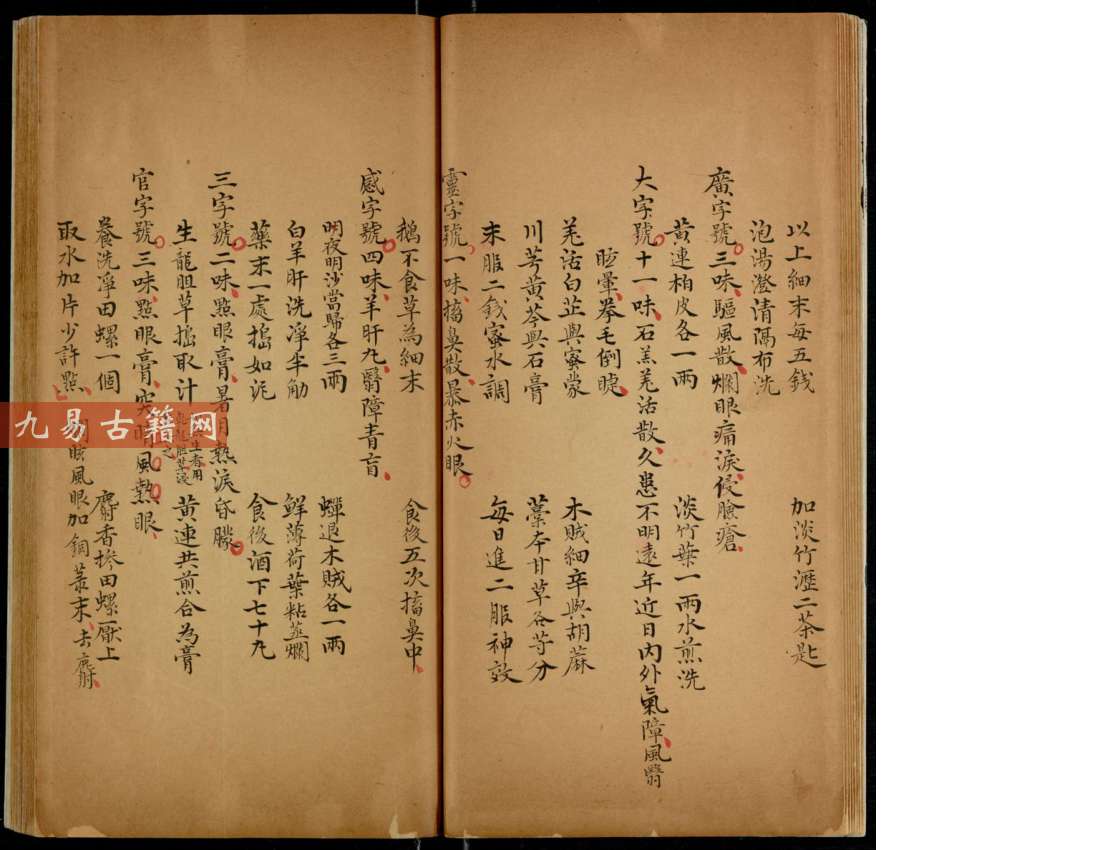 以上細末每五錢　加淡竹瀝二茶匙
泡湯澄清隔布洗
廣字號三味驅風散爛眼痛淚侵臉瘡
黄連柏皮各一兩　淡竹葉一兩水煎洗
大字號十一味石羔羌活散久患不明遠年近日内外氣障風翳
眩暈拳毛倒睫
羌活白芷與蜜蒙　木賊細辛與胡蔴
川芎黄芩與石膏　藁夲甘草各等分
末服二錢蜜水調　每日進二服神效
靈字號一味搐鼻散暴赤火眼
鵝不食草為細末　食後五次搐鼻中
感字號四味羊肝丸翳障青盲
明夜明沙當歸各三兩　蟬退木賊各一兩
白羊肝洗凈半觔　鮮薄荷葉粘蒸爛
藥末一處搗如泥　食後酒下七十丸
三字號二味點眼膏暑月熱淚昏朦
生龍胆草搗取汁　黄連共煎合為膏
官字號三味點眼膏突睛風熱眼
養洗凈田螺一個　麝香摻田螺厴上
取水加片少許點　爛眩風眼加銅菉末去麝
九易古籍网